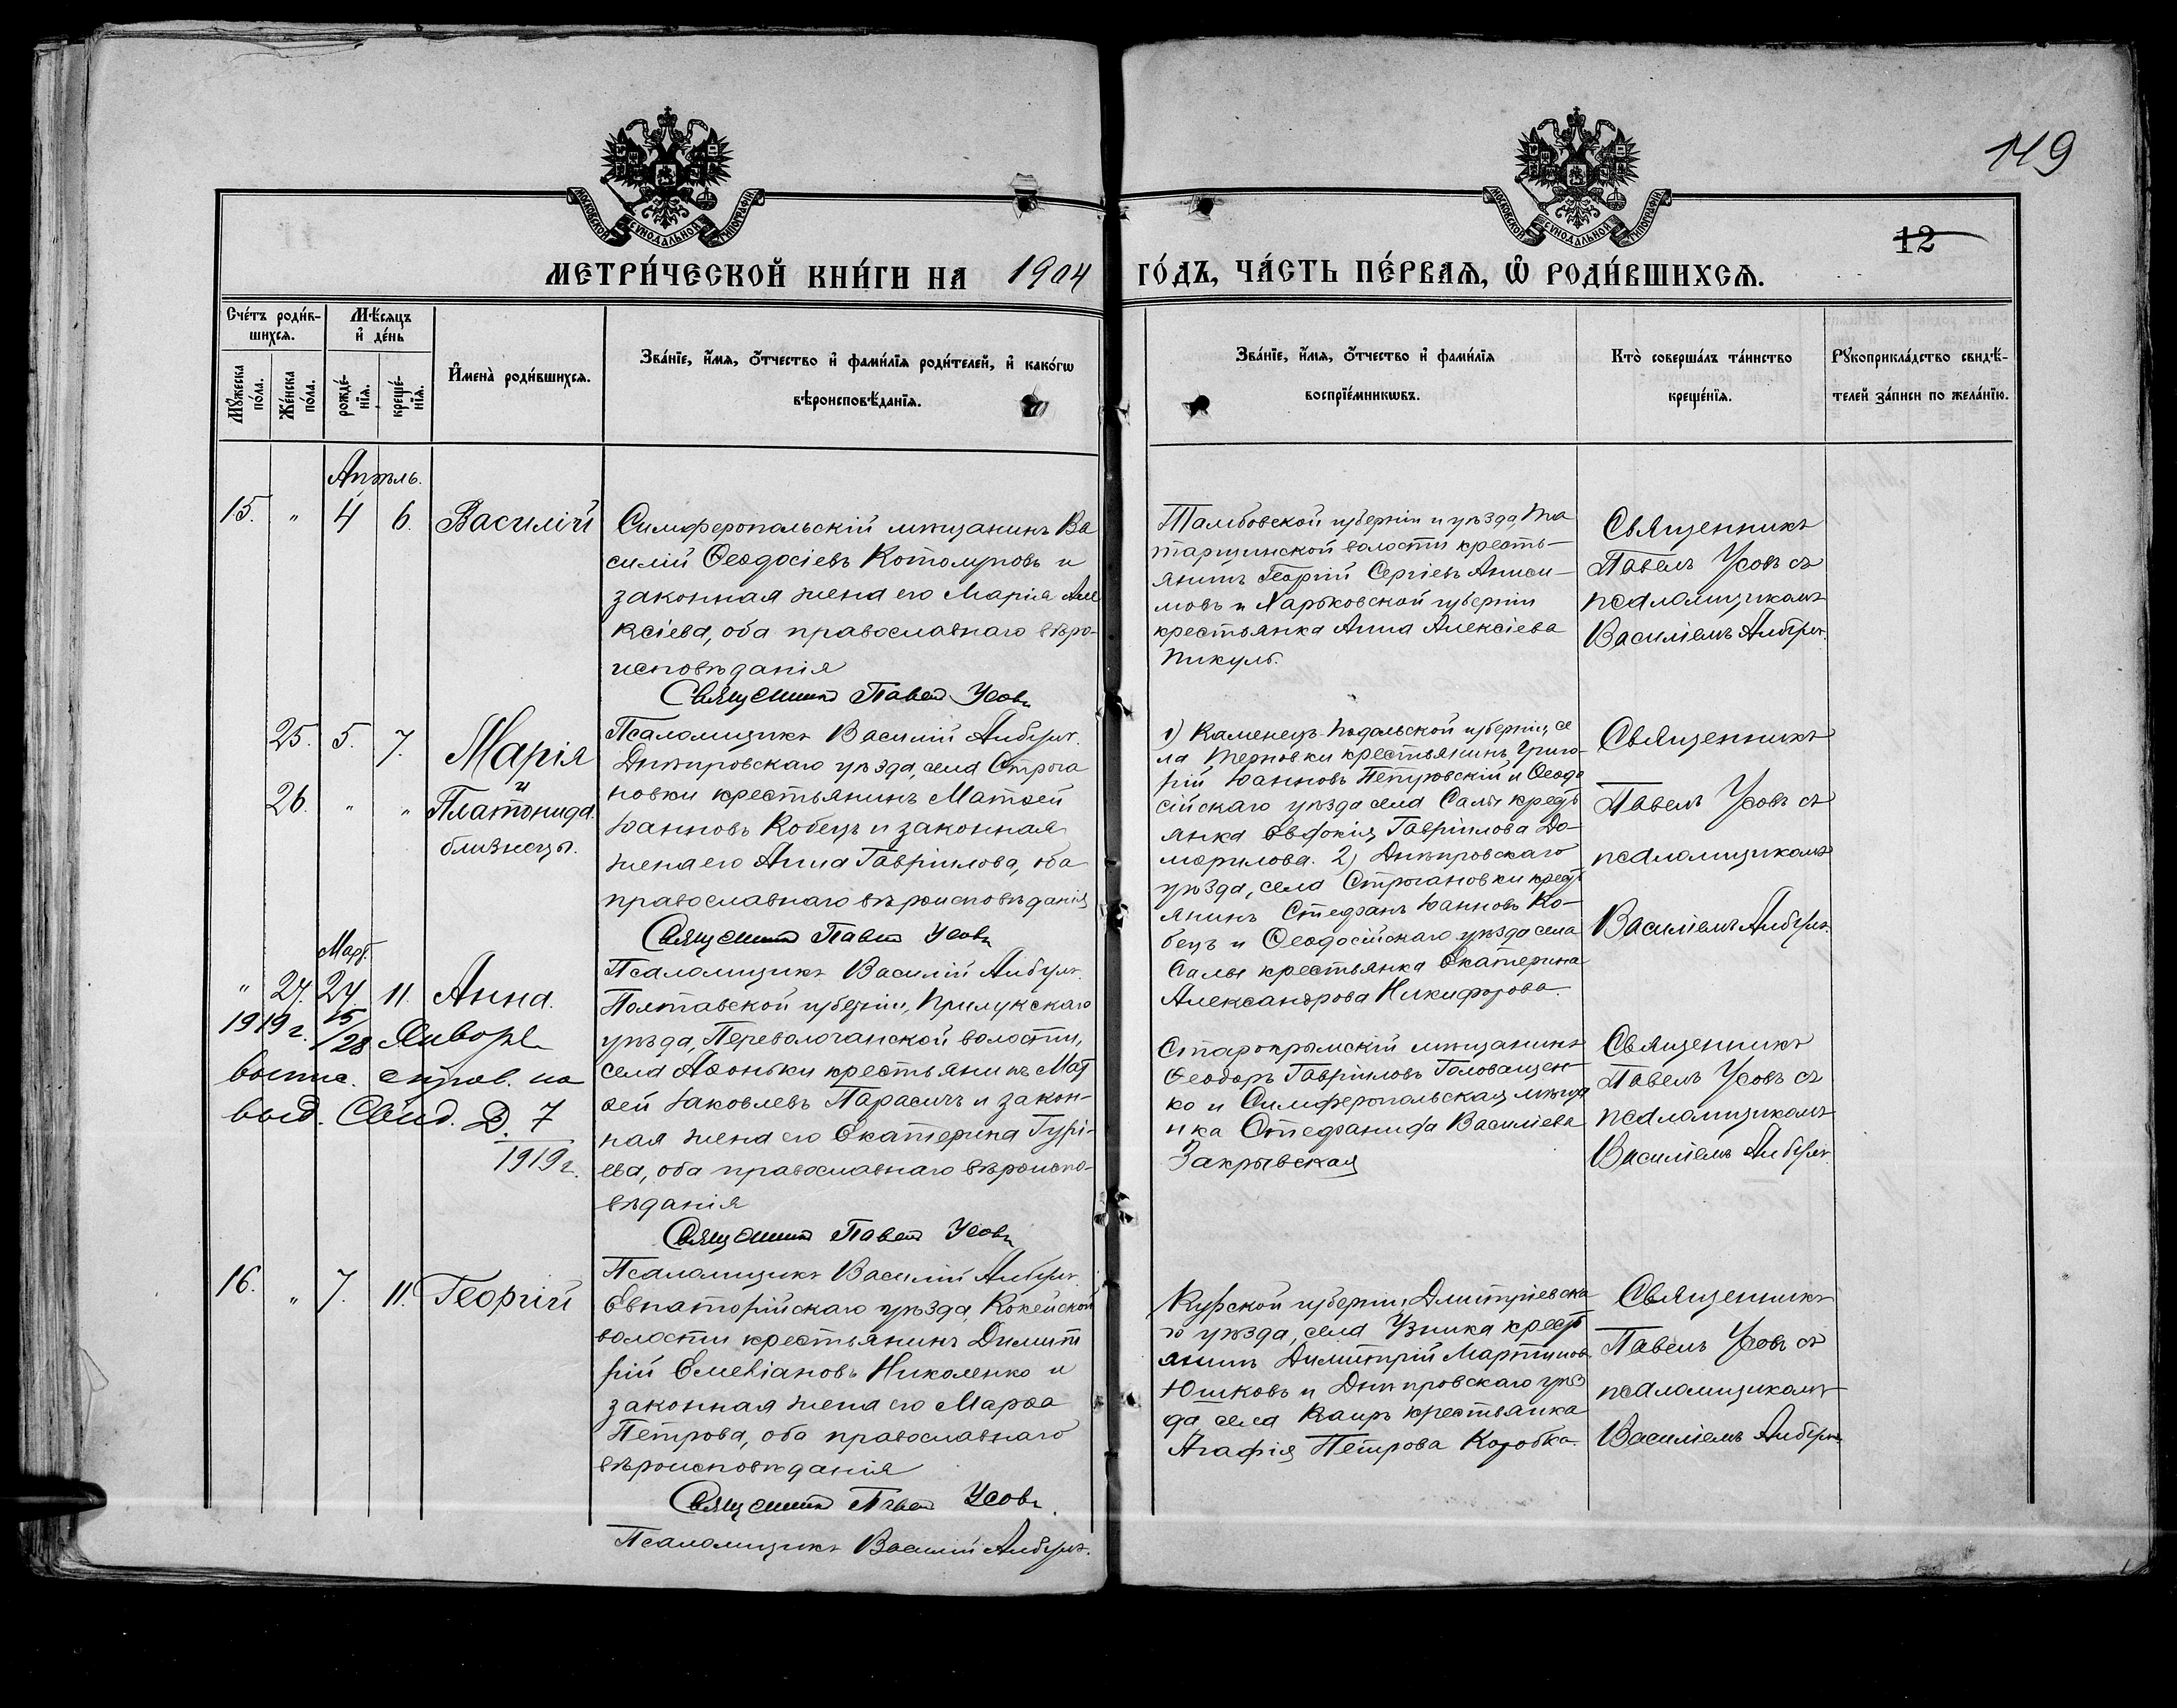 119
12
МОСКОВСКОЙ СѴНОДАЛЬНОЙ ТИПОГРАФІИ
МОСКОВСКОЙ СѴНОДАЛЬНОЙ ТИПОГРАФІИ
МЕТРИ́ЧЕСКОЙ КНИ́ГИ НА 1904 ГО́ДЪ, ЧА́СТЬ ПЕ́РВАѦ, Ѽ РОДИ́ВШИХСѦ.
Сче́тъ роди́в-
шихсѧ.
Мѣ́сѧцъ
и҆ де́нь
Мꙋ́жеска
по́ла.
Же́нска
по́ла.
рожде́-
нїѧ.
креще́-
нїѧ.
И҆мена̀ роди́вшихсѧ.
Зва́нїе, и҆́мѧ, ѻ҆́тчество и҆ фами́лїѧ роди́телей, и҆ како́гѡ
вѣроисповѣ́данїѧ.
Зва́нїе, и҆́мѧ, ѻ҆́тчество и҆ фами́лїѧ
воспрїе́мникѡвъ.
Кто̀ соверша́лъ та́инство
креще́нїѧ.
Рꙋкоприкла́дство свидѣ́-
телей за́писи по жела́нїю.
Апрѣль.
15. " 4 6. Василій
Симферопальскій мѣщанинъ Ва
силій Ѳеодосіевъ Котолуповъ и
законная жена его Марія Але
ксіева, оба православнаго вѣро-
исповѣданія
Священникъ Павелъ Усовъ
Псаломщикъ Василій
Тамбовской губерніи и уѣзда, Та
тарщинской волости кресть-
янинъ Георгій Сергіевъ Аниси-
мовъ и Харьковской губерніи
крестьянка Анна Алексіева
Пикуль.
Священникъ
Павелъ Усовъ съ
псаломщикомъ
Василіемъ
25. 5. 7. Марія
и
26. " " Платонида
близнецы.
Днѣпровскаго уѣзда, села Строга
новки крестьянинъ Матѳей
Іоанновъ Кобецъ и законная
жена его Анна Гавріилова, оба
православнаго вѣроисповѣданія
Священникъ Павелъ Усовъ
Псаломщикъ Василій
1) Каменецъ-Подольской губерніи, се
ла Терновки крестьянинъ Григо-
рій Іоанновъ Петровскій и Ѳеодо
сійскаго уѣзда села Салы крест
янка Евфокія Гавріилова До-
морилова. 2) Днѣпровскаго
уѣзда, села Строгановки крест
янинъ Стефанъ Іоанновъ Ко-
бецъ и Ѳеодосійскаго уѣзда села
Салы крестьянка Екатерина
Александрова Никифорова.
Священникъ
Павелъ Усовъ съ
псаломщикомъ
Василіемъ
Март.
" 27. 27. 11. Анна.
1919 г. 15/28 Января
выпис. справ. на
выд. Свид. Д. 7
1919 г.
Полтавской губерніи, Прилукскаго
уѣзда, Переволочанской волости,
села Аѳоньки крестьянинъ Мат
ѳей Іаковлевъ Парасичъ и закон-
ная жена его Екатерина Гурі-
ева, оба православнаго вѣроиспо-
вѣданія
Священникъ Павелъ Усовъ
Псаломщикъ Василій
Старокрымскій мѣщанинъ
Ѳеодоръ Гавріиловъ Голованцен-
ко и Симферопальская мѣща
нка Стефанида Василіева
Закрывская
Священникъ
Павелъ Усовъ съ
псаломщикомъ
Василіемъ
16. " 7. 11. Георгій
Евпаторійскаго уѣзда, Кокейской
волости крестьянинъ Димит
рій Емеліановъ Николенко и
законная жена его Марѳа
Петрова, оба православнаго
вѣроисповѣданія
Священникъ Павелъ Усовъ.
Псаломщикъ Василій
Курской губерніи, Дмитріевска
го уѣзда, села Узника крест
янинъ Димитрій Мартиновъ
Юшковъ и Днѣпровскаго уѣз
да села Каиръ крестьянка
Агафія Петрова Коробка.
Священникъ
Павелъ Усовъ съ
псаломщикомъ
Василіемъ